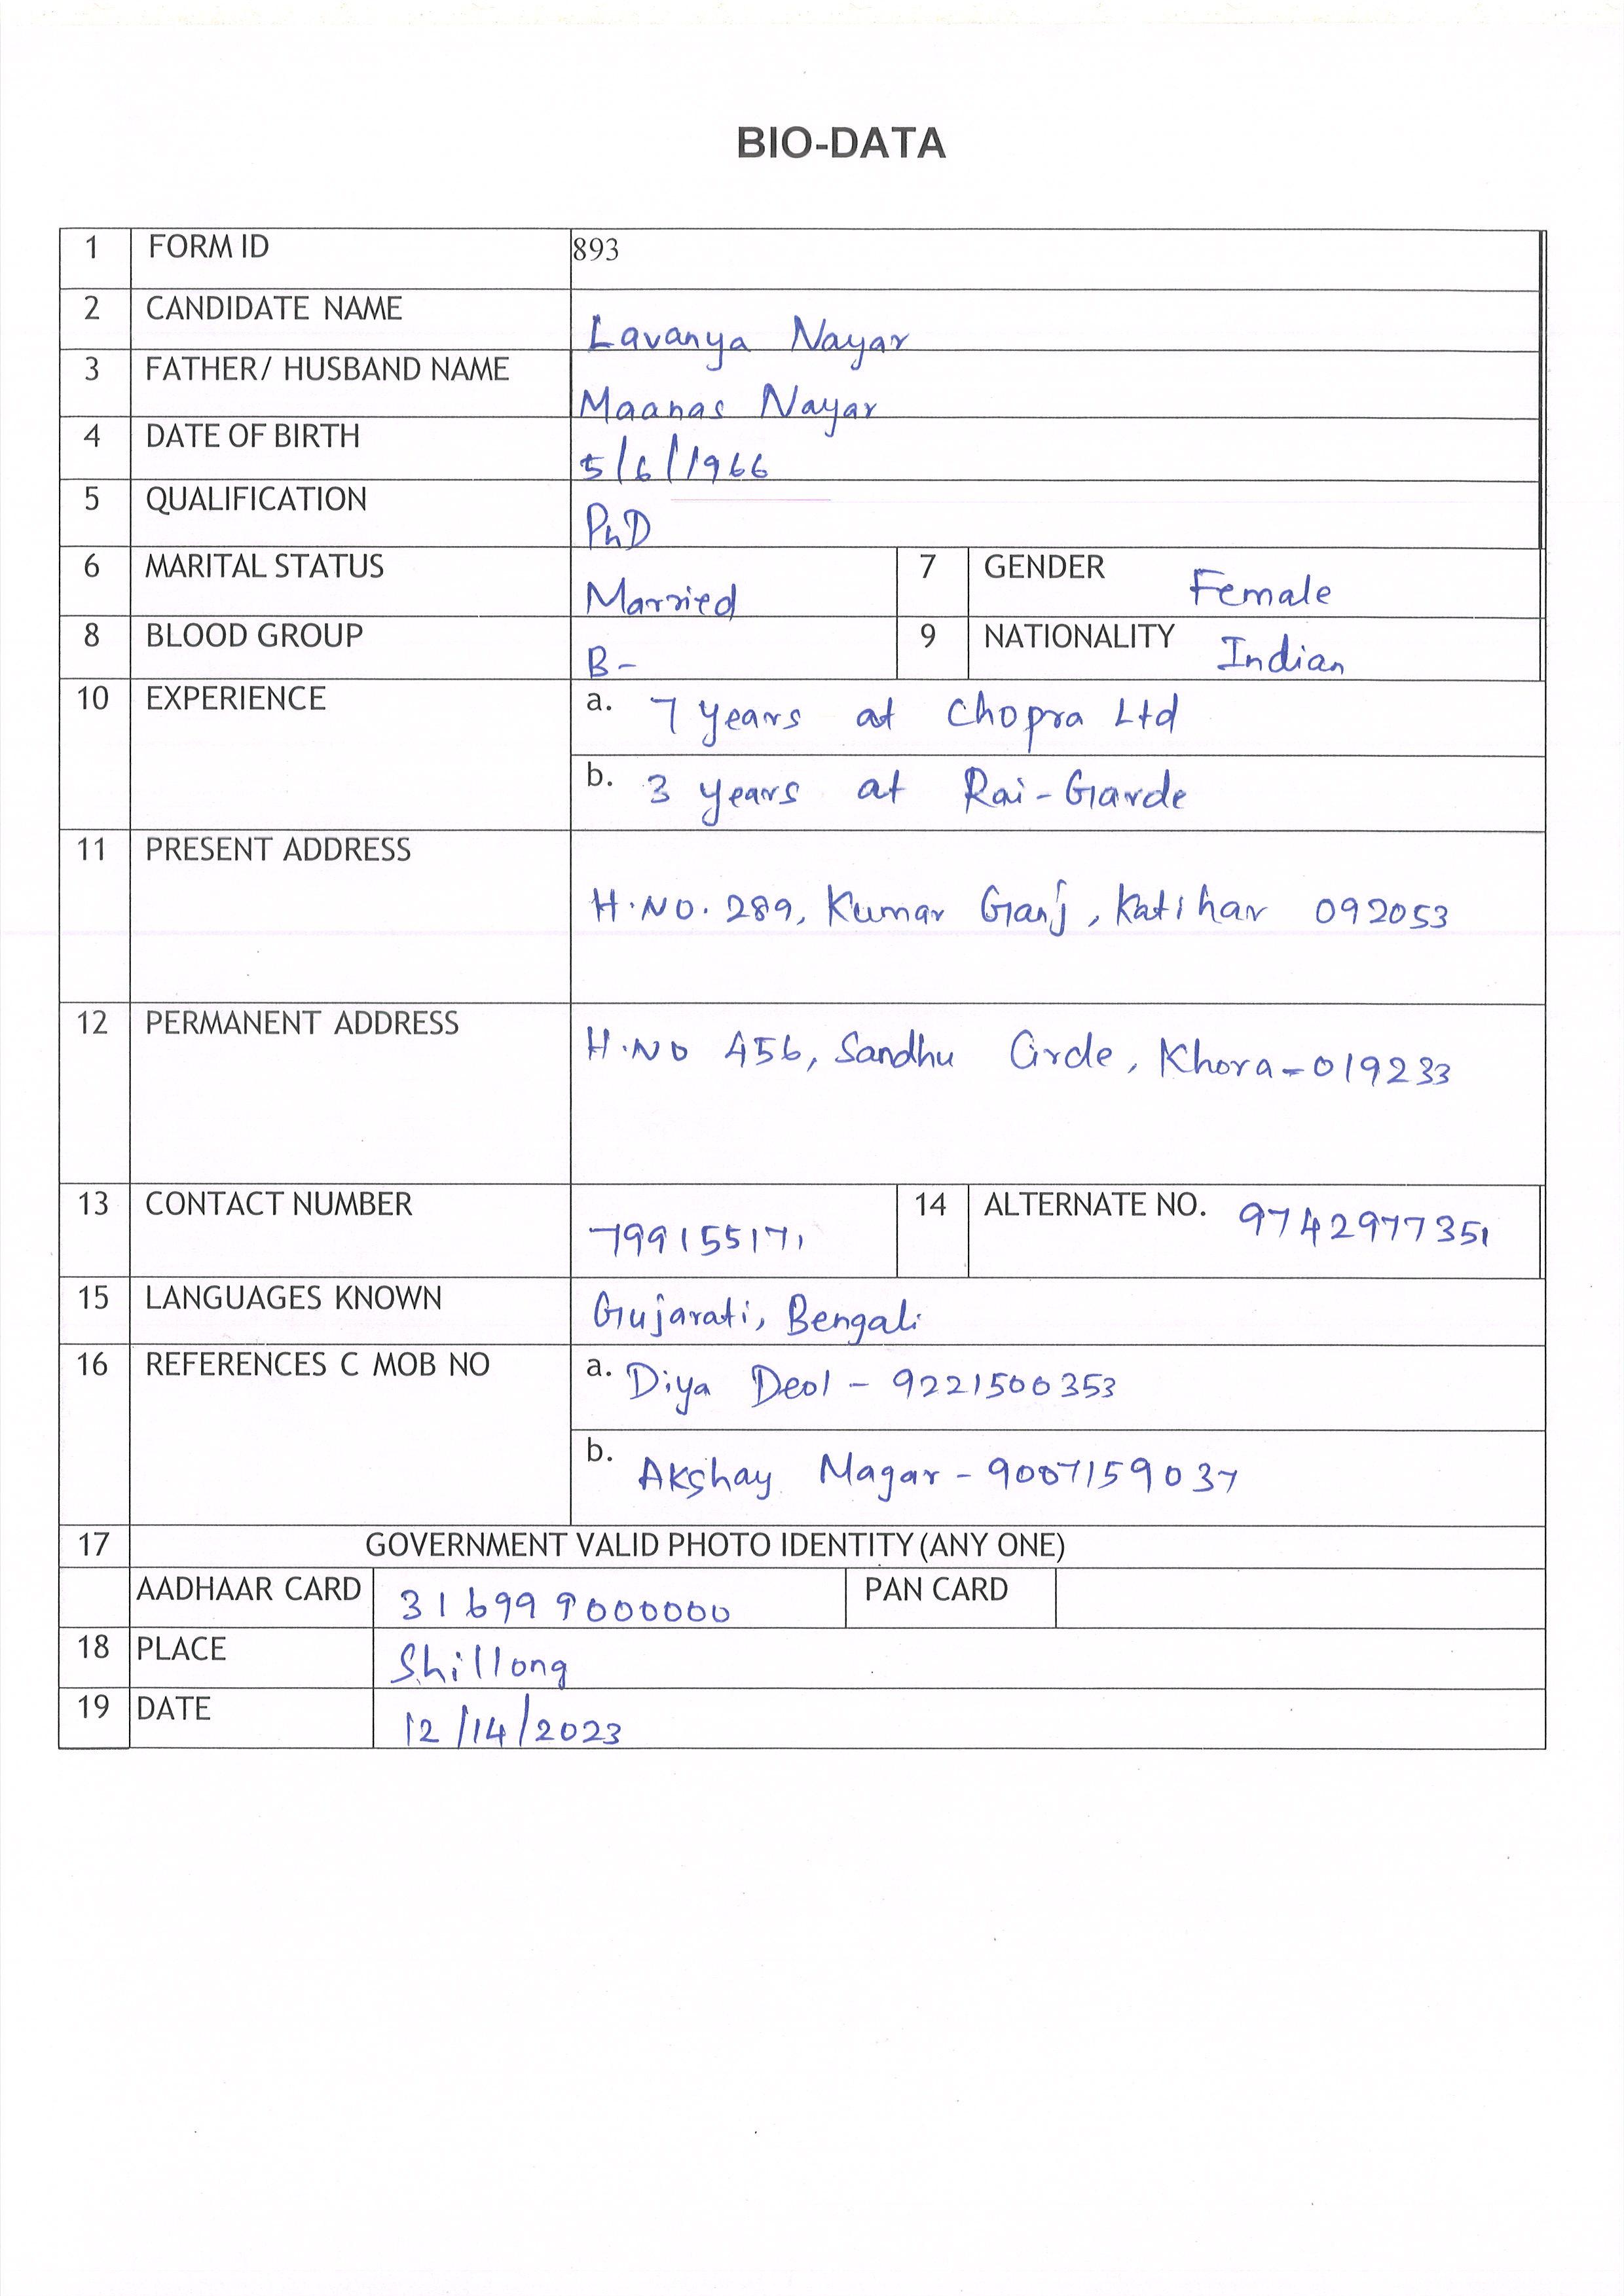 BIO-DATA
1 FORM ID 893
2 CANDIDATE NAME Lavanya Nayar
3 FATHER/ HUSBAND NAME Maanas Nayar
4 DATE OF BIRTH 5/6/1966
5 QUALIFICATION PhD
6 MARITAL STATUS Married 7 GENDER Female
8 BLOOD GROUP B- 9 NATIONALITY Indian
10 EXPERIENCE a. 7 years at Chopra Ltd
b. 3 years at Rai-Garde
11 PRESENT ADDRESS H.NO. 289, Kumar Ganj, Katihar 092053
12 PERMANENT ADDRESS H.NO 456, Sandhu Circle, Khora-019233
13 CONTACT NUMBER 799155171 14 ALTERNATE NO. 9742977351
15 LANGUAGES KNOWN Gujarati, Bengali
16 REFERENCES C MOB NO a. Diya Deol - 9221500353
b. Akshay Magar - 9007159037
17 GOVERNMENT VALID PHOTO IDENTITY (ANY ONE)
AADHAAR CARD 316999000000 PAN CARD
18 PLACE Shillong
19 DATE 12/14/2023